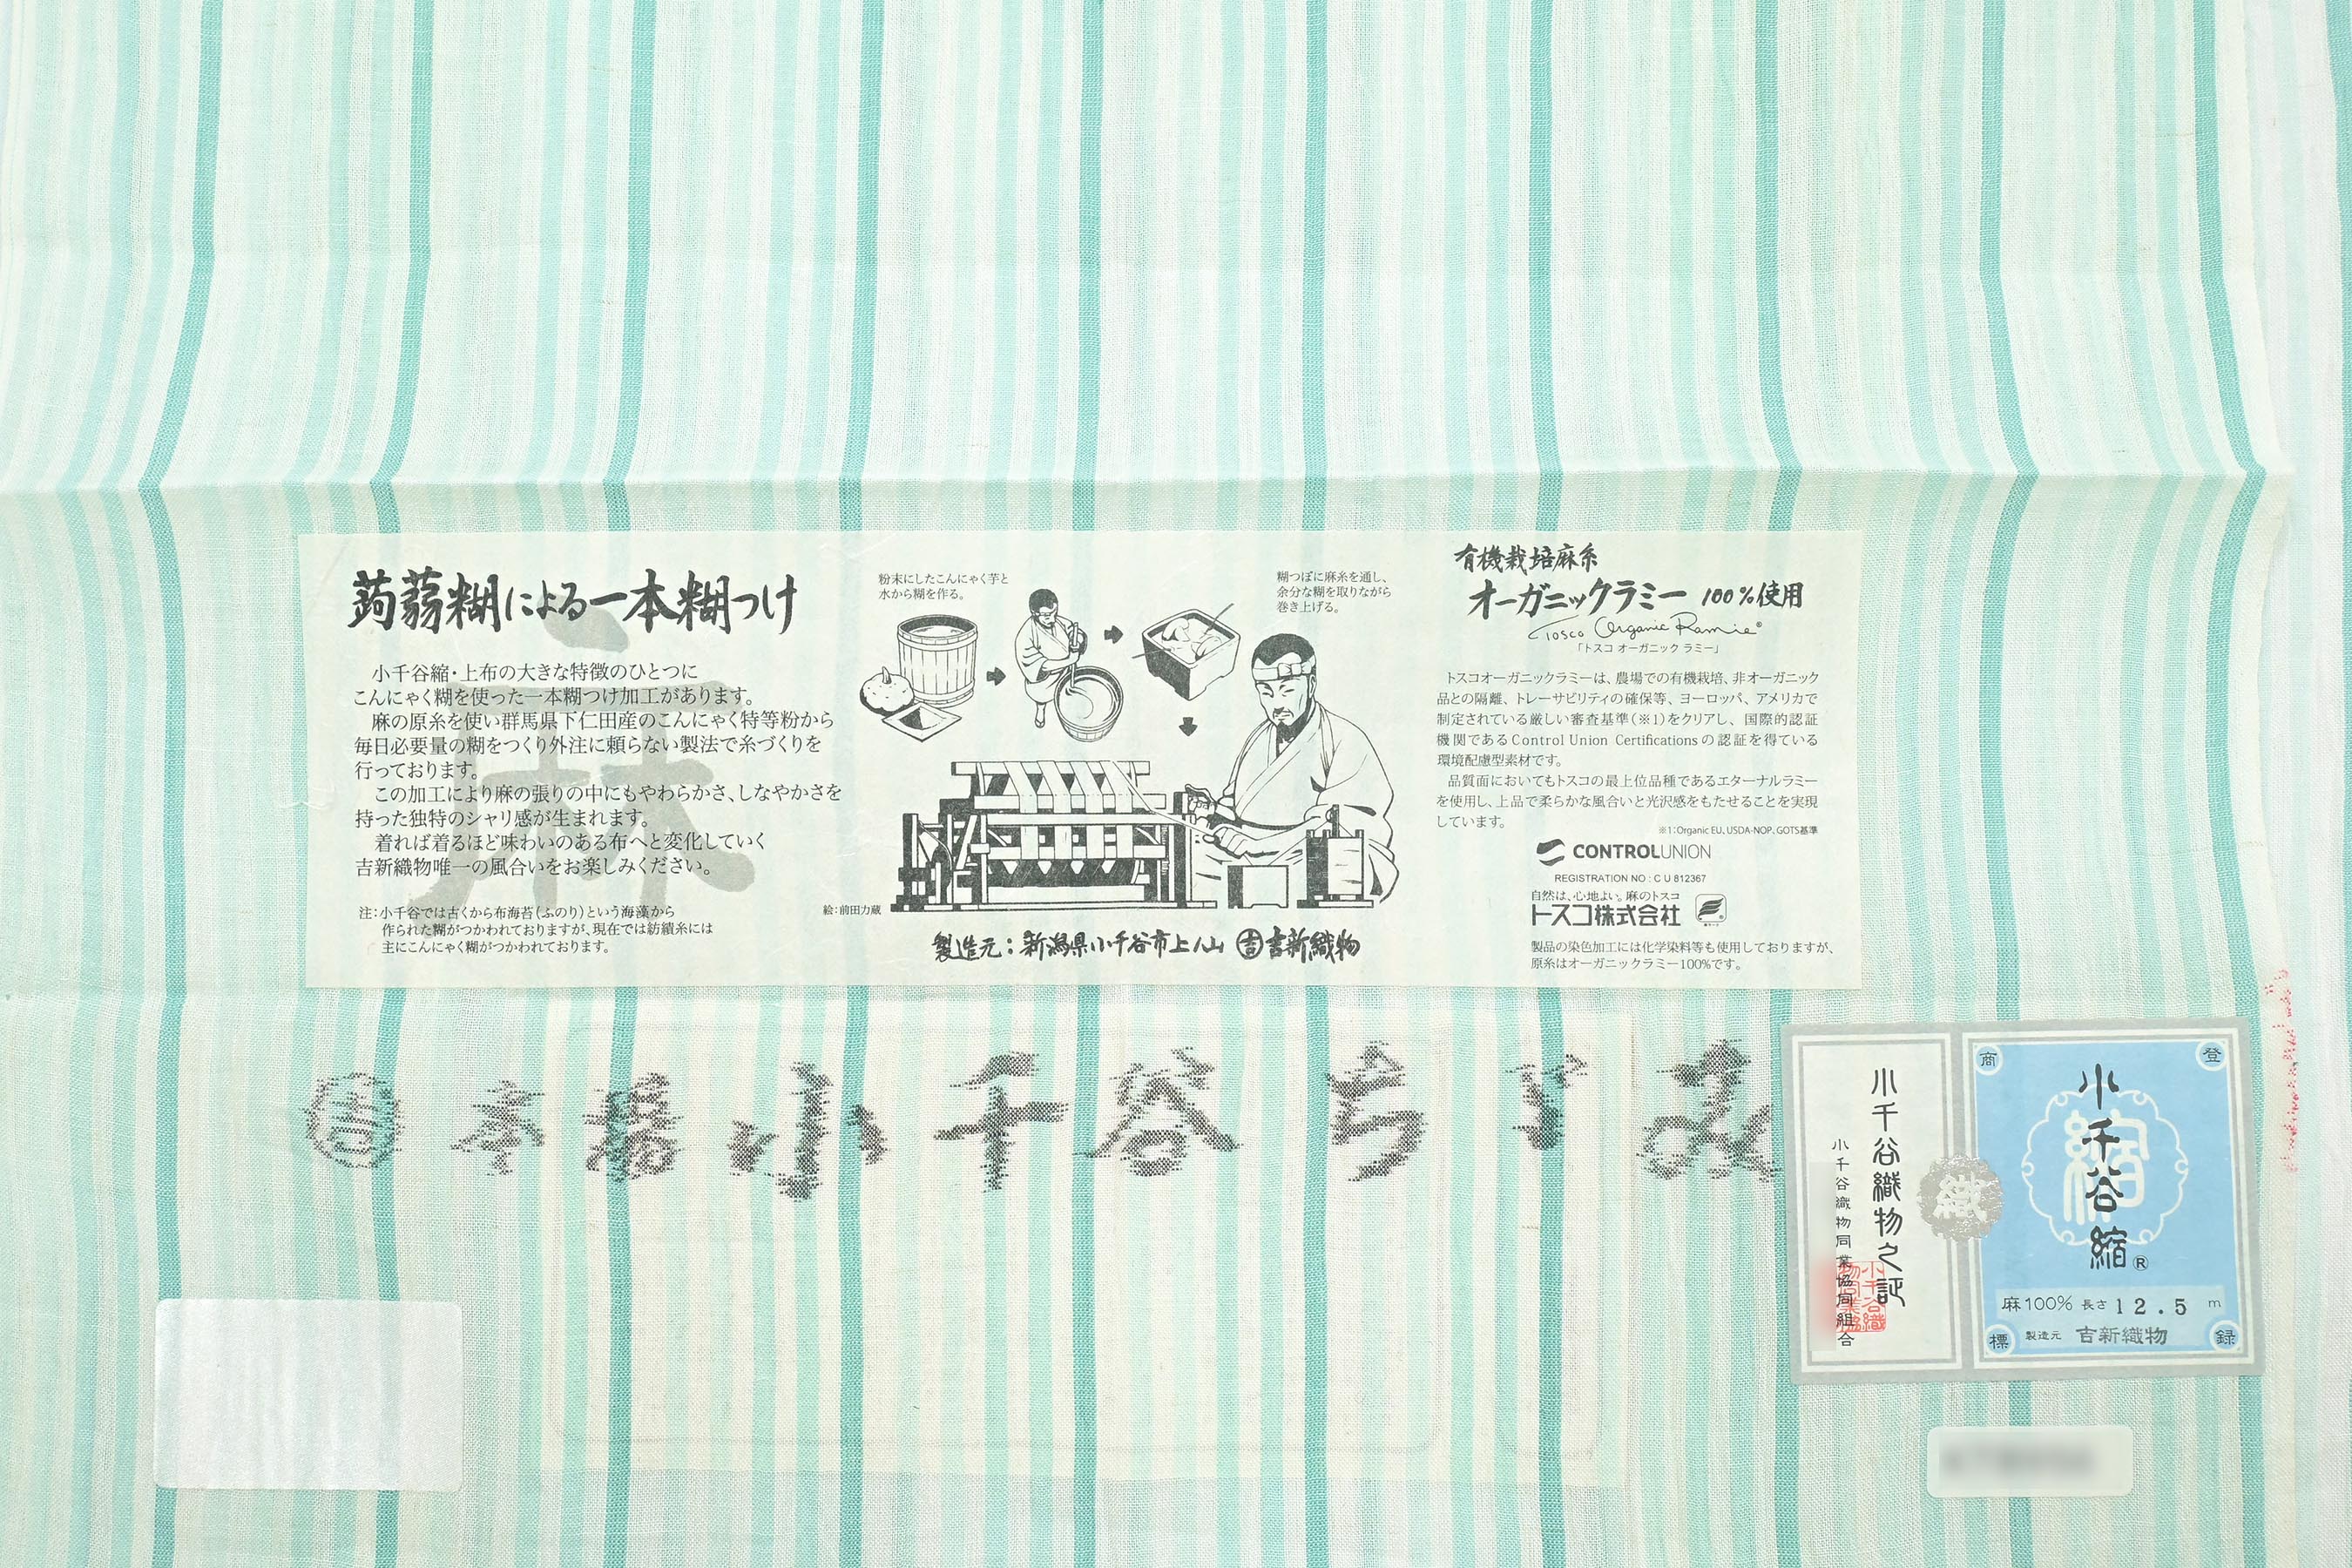 蒟蒻糊による一本糊つけ
小千谷縮・上布の大きな特徴のひとつに
こんにゃく糊を使った一本糊つけ加工があります。
麻の原糸を使い群馬県下仁田産のこんにゃく特等粉から
毎日必要量の糊をつくり外注に頼らない製法で糸づくりを
行っております。
この加工により麻の張りの中にもやわらかさ、しなやかさを
持った独特のシャリ感が生まれます。
着れば着るほど味わいのある布へと変化していく
吉新織物唯一の風合いをお楽しみください。
麻
注:小千谷では古くから布海苔(ふのり)という海藻から
作られた糊がつかわれておりますが、現在では紡績糸には
主にこんにゃく糊がつかわれております。
粉末にしたこんにゃく芋と
水から糊を作る。
糊つぼに麻糸を通し、
余分な糊を取りながら
巻き上げる。
絵:前田力蔵
製造元:新潟県小千谷市上ノ山 吉 吉新織物
有機栽培麻糸
オーガニックラミー 100%使用
Tosco Organic Ramie®
「トスコ オーガニック ラミー」
トスコオーガニックラミーは、農場での有機栽培、非オーガニック
品との隔離、トレーサビリティの確保等、ヨーロッパ、アメリカで
制定されている厳しい審査基準(※1)をクリアし、国際的認証
機関であるControl Union Certificationsの認証を得ている
環境配慮型素材です。
品質面においてもトスコの最上位品種であるエターナルラミー
を使用し、上品で柔らかな風合いと光沢感をもたせることを実現
しています。
※1:Organic EU、USDA-NOP、GOTS基準
CONTROLUNION
REGISTRATION NO : C U 812367
自然は、心地よい。麻のトスコ
トスコ株式会社
製品の染色加工には化学染料等も使用しておりますが、
原糸はオーガニックラミー100%です。
吉 本場小千谷ちゞみ
小千谷織物之証
小千谷織物同業協同組合
織
商
登
標
録
縮
小千谷縮®
麻100% 長さ12.5m
製造元 吉新織物